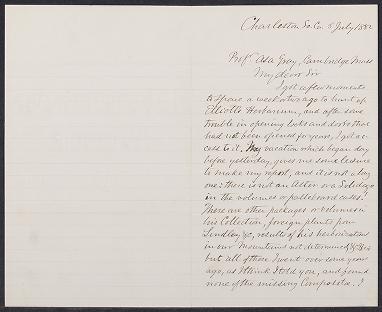 Charleston So. Ca. 5 July 1882
Prof. Asa Gray, Cambridge Mass
My dear Sir
I got a few moments
to spare a week or two ago to hunt up
Elliotts Herbarium, and after some
trouble in opening locks and doors that
had not been opened for years, I got ac-
cess to it. My vacation which began day
before yesterday, gives me some leisure
to make my report, and it is not a long
one: there is not an Aster or a Solidago
in the volumes or pasteboard cases.
There are other packages or volumes in
his Collection, foreign plants from
Lindley &c, results of his herborizations
in our Mountains not determined
but all of those I went over some years
ago, as I think I told you, and found
none of the missing Compositae. I